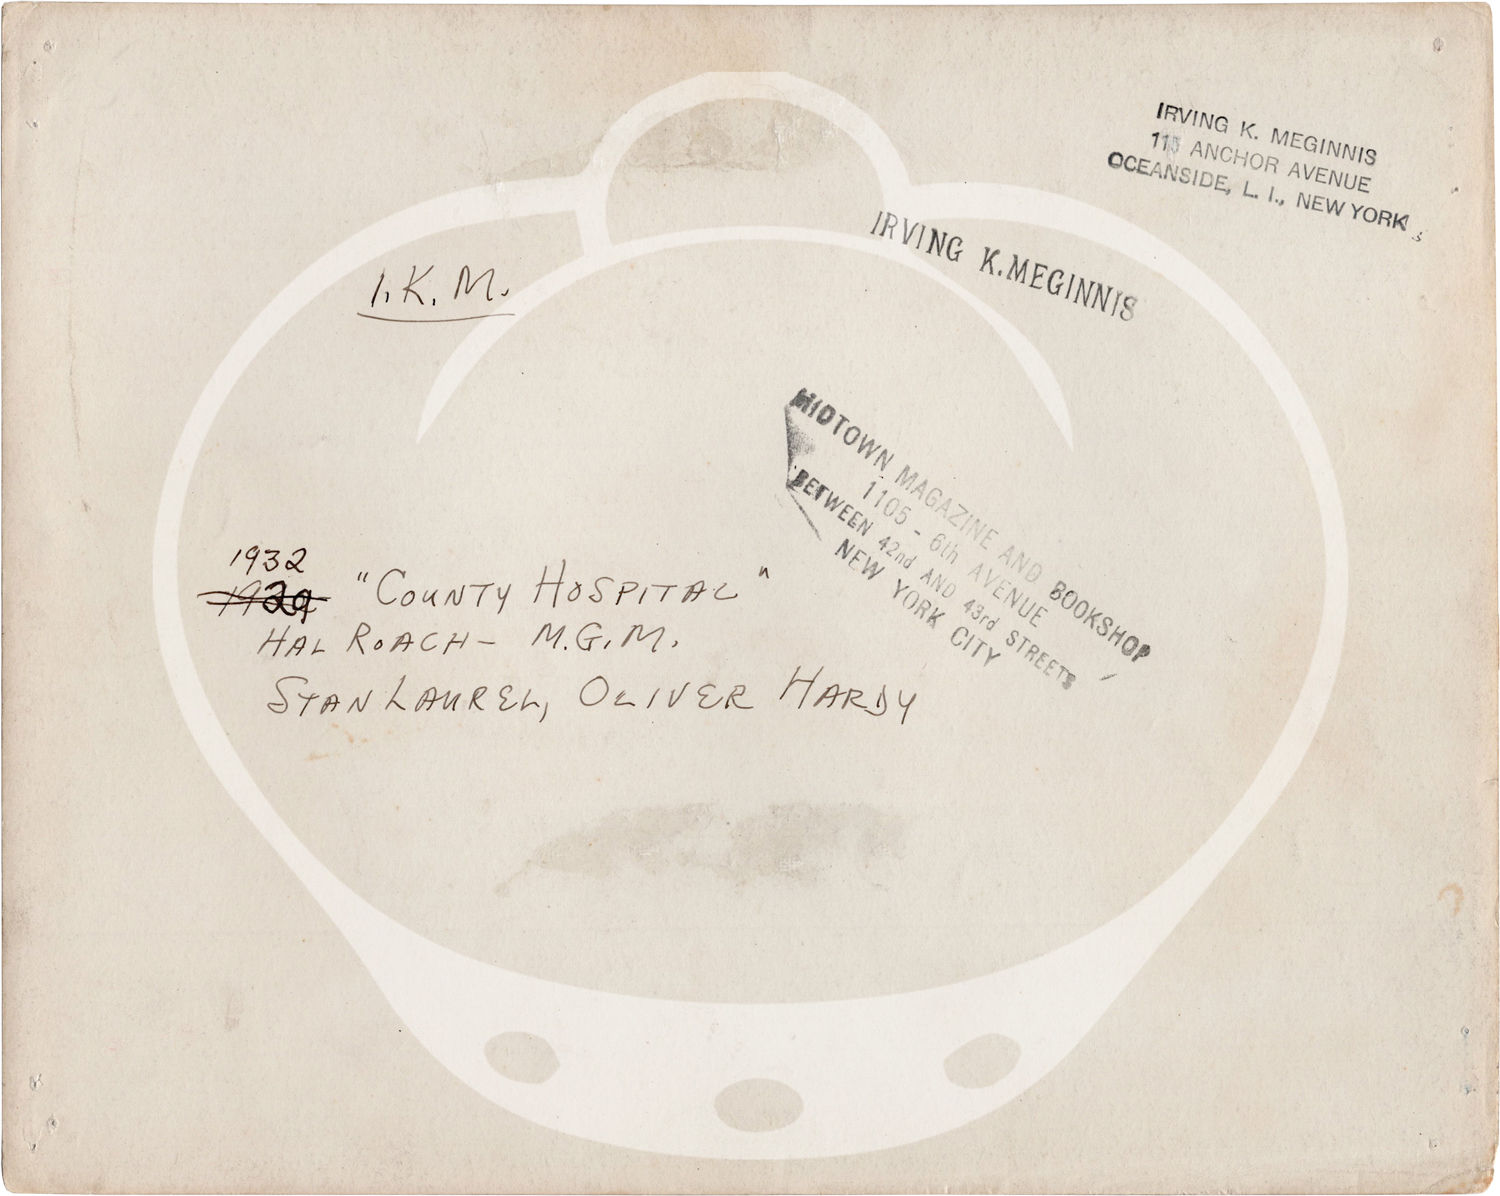 IRVING K. MEGINNIS
115 ANCHOR AVENUE
OCEANSIDE, L. I., NEW YORK
IRVING K. MEGINNIS
I. K. M.
MIDTOWN MAGAZINE AND BOOKSHOP
1105 - 6th AVENUE
BETWEEN 42nd AND 43rd STREETS
NEW YORK CITY
1932
1929 "COUNTY HOSPITAL"
HAL ROACH - M.G.M.
STAN LAUREL, OLIVER HARDY